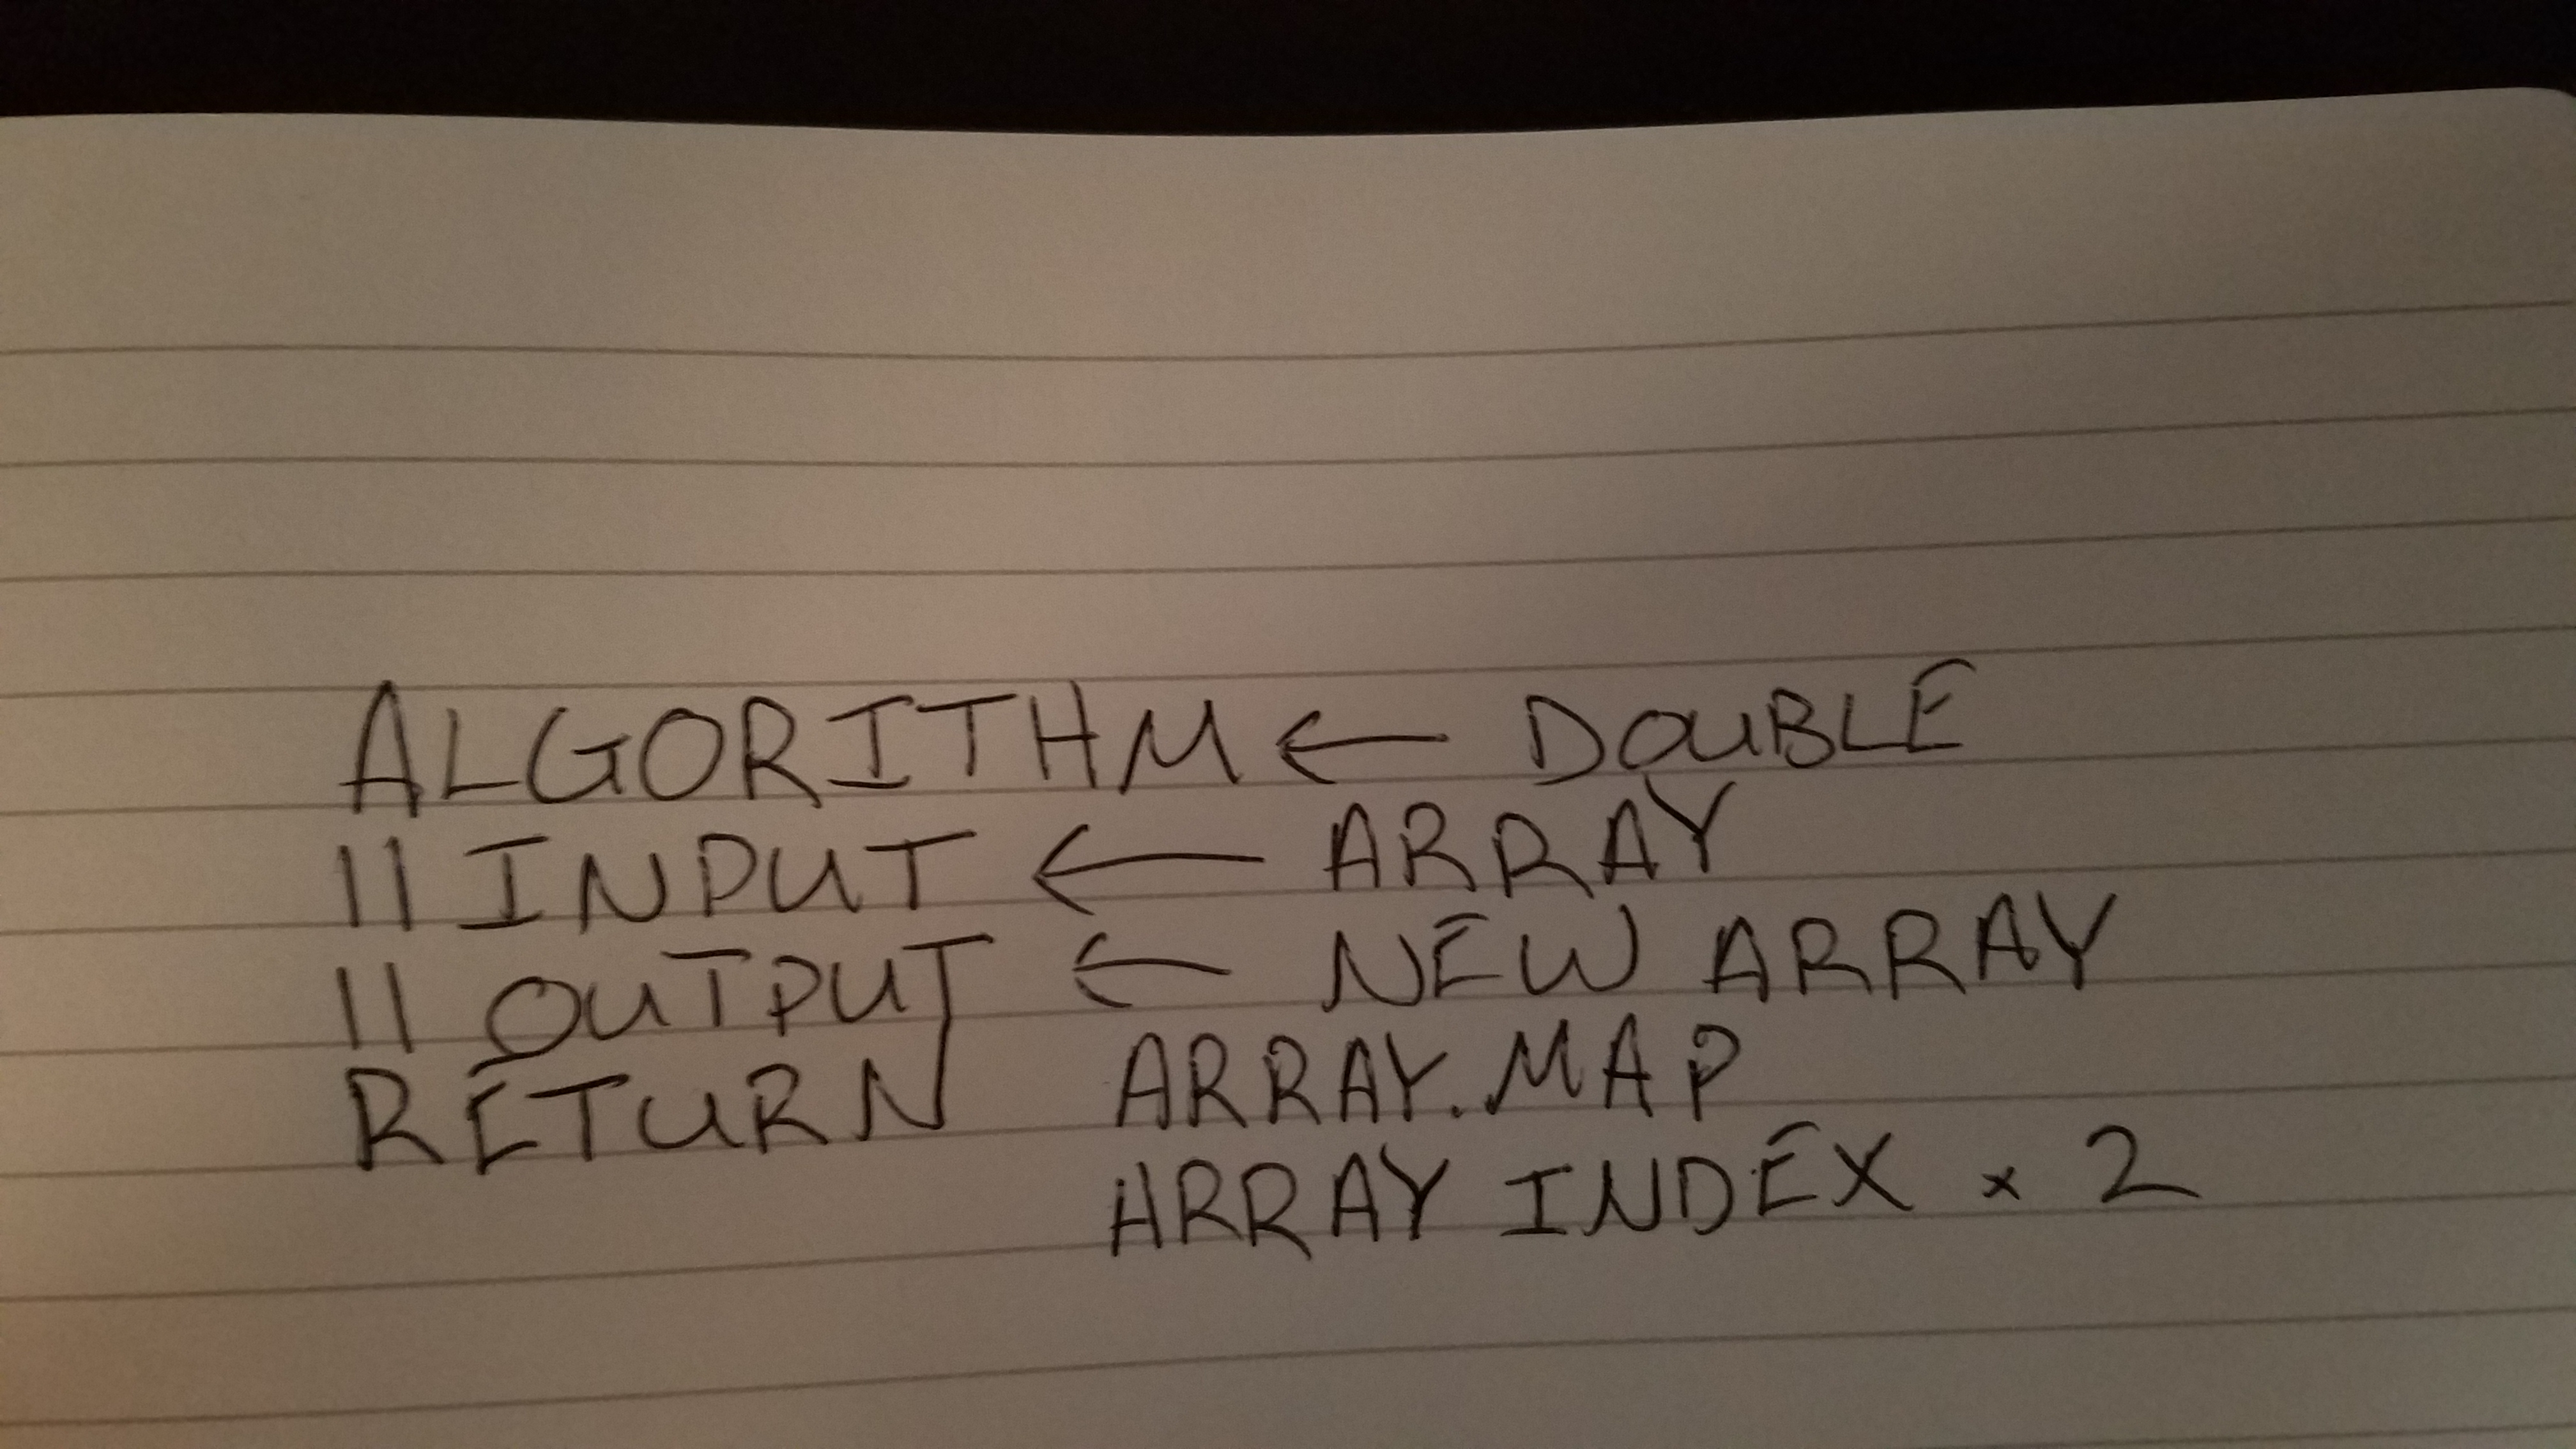 ALGORITHM ← DOUBLE
|| INPUT ← ARRAY
|| OUTPUT ← NEW ARRAY
RETURN ARRAY.MAP
ARRAY INDEX × 2